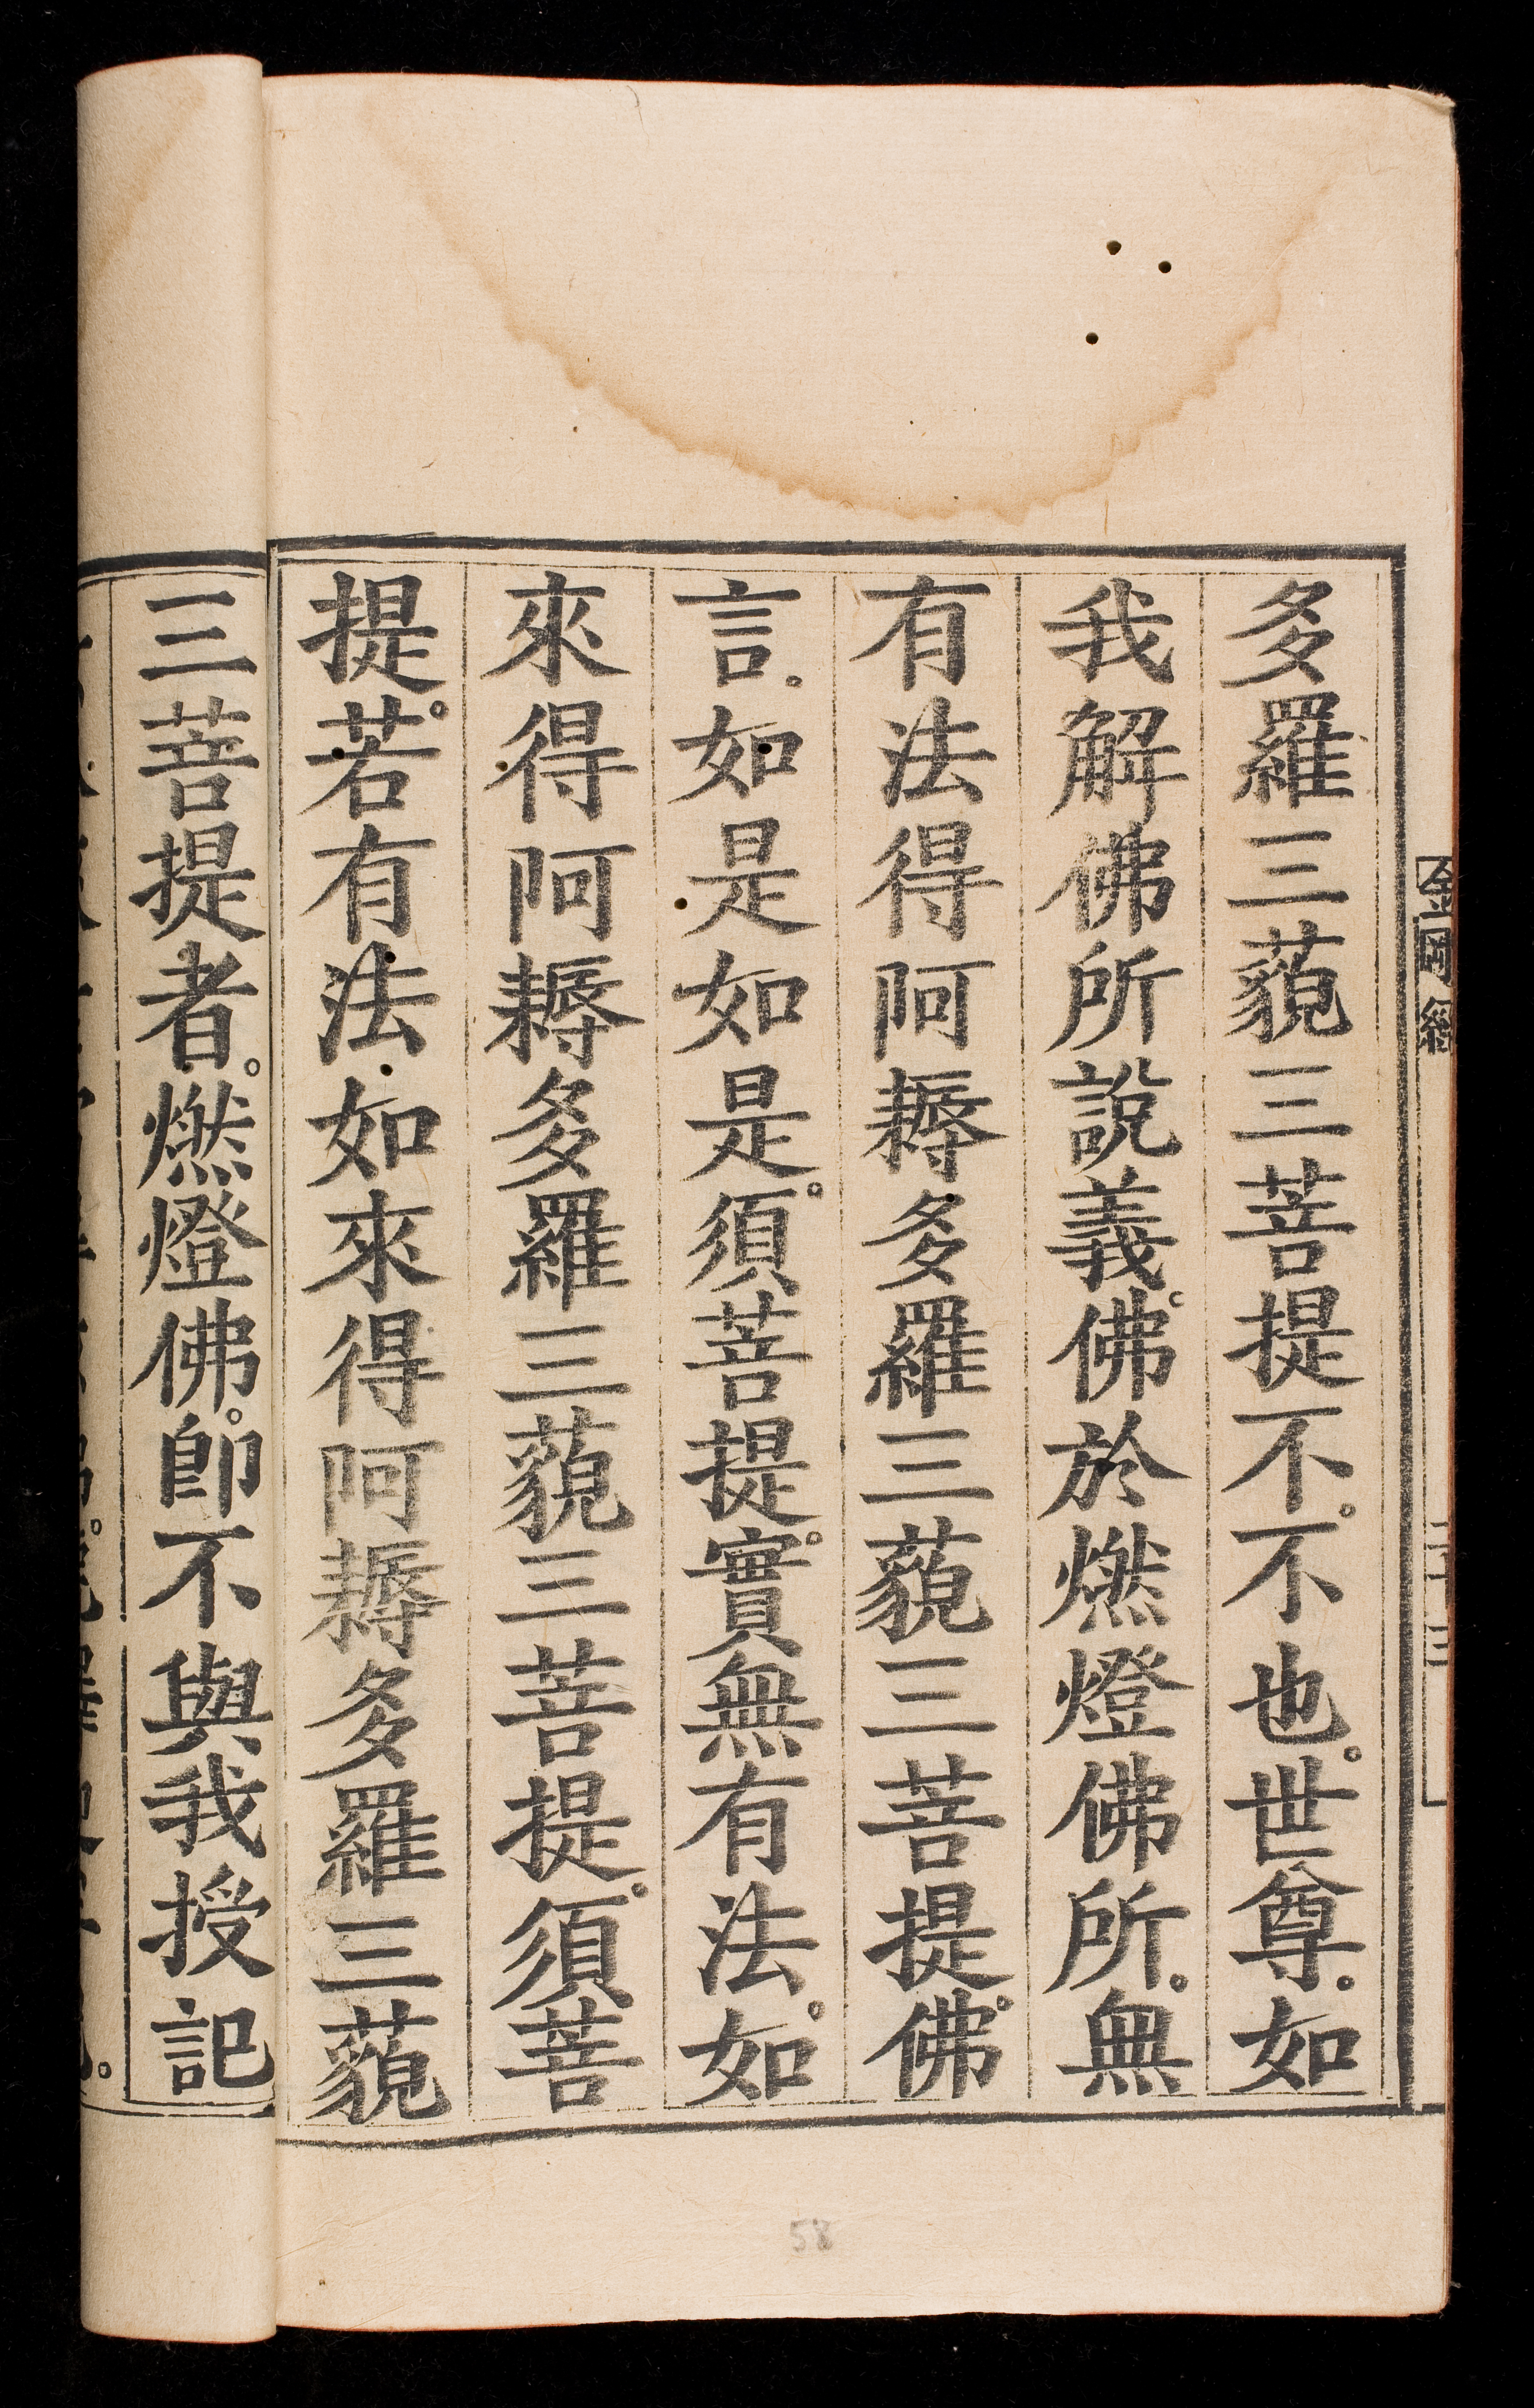 金剛經
多羅三藐三菩提不。不也。世尊。如
我解佛所說義。佛於燃燈佛所。無
有法得阿耨多羅三藐三菩提。佛
言。如是如是。須菩提。實無有法。如
來得阿耨多羅三藐三菩提。須菩
提。若有法。如來得阿耨多羅三藐
三菩提者。燃燈佛。即不與我授記
58